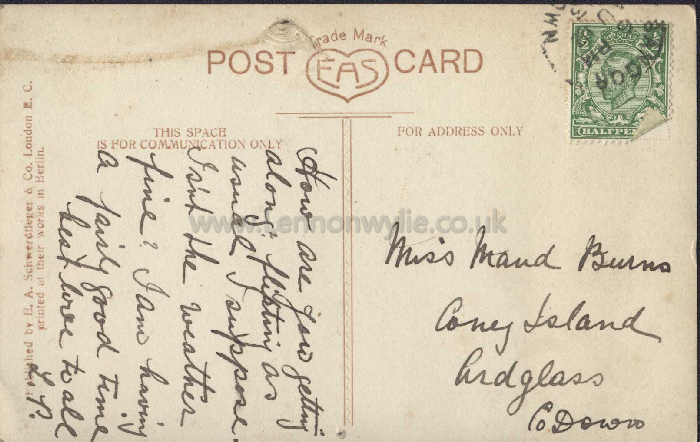 Trade Mark
POST EAS CARD
THIS SPACE
IS FOR COMMUNICATION ONLY
FOR ADDRESS ONLY
Published by E. A. Schwerdtfeger & Co. London E. C.
printed at their works in Berlin.
How are you getting
along flirting as
usual I suppose.
Isn't the weather
fine? I am having
a fairly good time
best love to all
Miss Maud Burns
Coney Island
Ardglass
Co Down
HALFPE
www.lennonwylie.co.uk